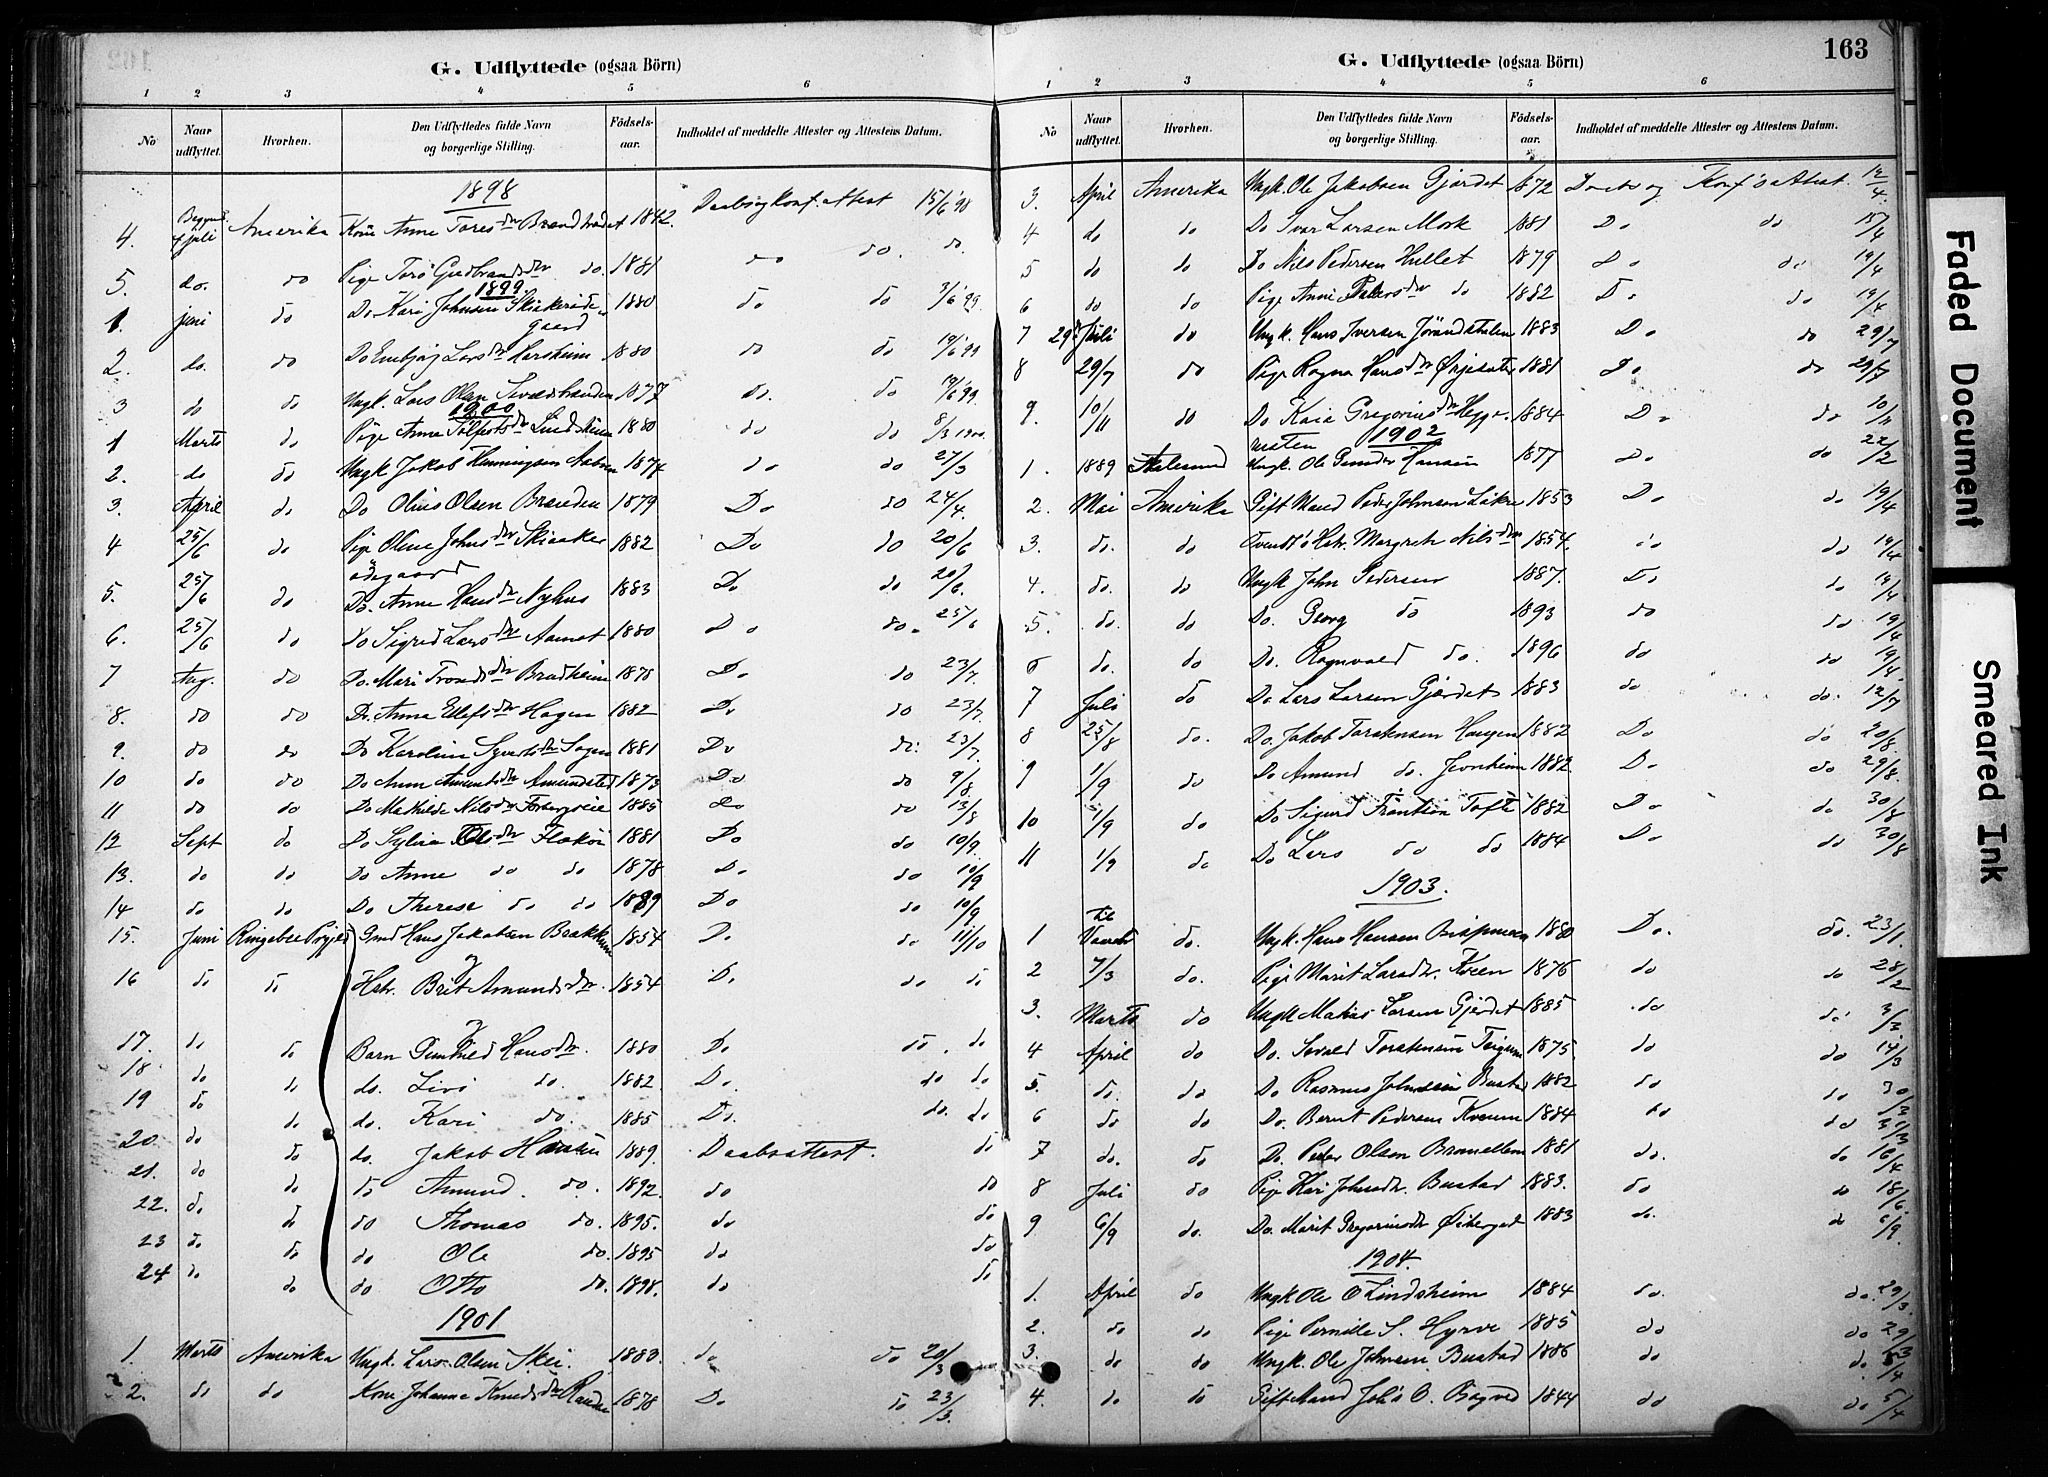 G. Udflyttede (ogsaa Börn)
1 2 3 4 5 6
No Naar udflyttet. Hvorhen. Den Udflyttedes fulde Navn og borgerlige Stilling. Födsels-aar. Indholdet af meddelte Attester og Attestens Datum.
1898
4. juli Amerika Kone Anne Toresdtr 1842. Daab og Konf. attest 15/6 98
5. do. do Pige do. 1881 do do. do.
1899
1. juni do Do. Kari Johnsen 1880 do do 3/6 99
gaard
2. do. do Do Lars dtr 1880 do do 19/6 99
3 do do Ungk. Lars Olsen 1877 do. do 19/6 99.
1900
1 Marts do Pige Anne 1880 do do 8/3 1900.
2. do do Ungk Jakob Henningsen 1874 do do 27/3
3. April do Do Olius Olsen Branden 1879 Do do 24/4.
4 25/6 do Pige Oline Johns dtr Skiaker 1882 Do do 20/6
ødegaard
5. 25/6 do Do. Anne Hans dtr Nyhus 1883 Do do 20/6.
6. 25/6 do Do Sigrid Lars dtr Aamot 1880 Do do. 25/6
7 Aug. do Do. Mari Tronds dtr Bradheim 1878 Do. do 23/7.
8. do do Do. Anna Ellefs dtr Hagen 1882 Do do 23/7.
9. do do Do Karoline dtr 1881 Do do. 23/7.
10 do do Do Anne dtr Amundstad 1873 Do do 9/8.
11 do do Do Mathilde Nils dtr 1885 do do 13/8
12 Sept do Do Sylvia Ols dtr 1881 Do do 10/9.
13. do do Do Anne do do 1878 Do do 10/9
14 do do Do Therese do do 1889 Do do 10/9
15. Juni Ringebu Prgjeld Gmd Hans Jakobsen Brækkum 1854 D. do 11/10
16 do do Hstr. Brit Amunds dtr. 1854 Do do do
17. do do Barn Gunhild Hans dtr. 1880 Do do. do
18. do do do. Livi do. 1882. Do. do do
19 do do do. Kari do. 1885 Do. do. do
20. do do do. Jakob Hansen 1889. Daabsattest. do
21. do do do Amund. do. 1892. do do
22. do do do Thomas do. 1895. do do
23 do do do Ole do. 1895 do do
24 do do do Otto do. 1898. do do
1901
1. Marts Amerika Ungk. Lars Olsen Skei. 1883. do do 20/3
2. do do Kone Johanne Knuds dtr 1878 Do do 23/3.
G. Udflyttede (ogsaa Börn) 163
1 2 3 4 5 6
No Naar udflyttet. Hvorhen. Den Udflyttedes fulde Navn og borgerlige Stilling. Födsels-aar. Indholdet af meddelte Attester og Attestens Datum.
3. April Amerika Ungk. Ole Jakobsen Gjørdet 1872 Daabs og Konf's Attest. 12/4.
4 do do Do Ivar Larsen Mork 1881 Do do 15/4
5 do do Do Nils Pedersen Hullet 1879 Do do 19/4
6 do do Pige Anne dtr do 1882 Do do 19/4
7 29 Juli do Ungk. Hans Iversen 1883 Do do 29/7
8 29/7 do Pige Ragna Hans dtr 1881 Do do 29/7
9. 10/11 do Do Kaia Gregorius dtr 1884 Do do 10/11
1902
1. 1889 Aalesund Ungk. Ole Hansen 1877 Do do 22/2
2. Mai Amerika Gift Mand Peder Johnsen 1853 Do do 19/4
3. do. do Hstr. Margrete Nils dtr 1854. do do 19/4
4. do. do Ungk John Pedersen 1887. Do do 19/4
5. do. do Do. Georg do 1893 do do 19/4
6 do. do Do. Ragnvald do. 1896 do do 19/4.
7 Juli do Do Lars Larsen Gjørdet 1883 do do. 12/7
8 25/8 do. Do. Jakob Torstensen Haugen 1882 Do do 20/8.
9 1/9 do Do Amund do. 1882 Do. do 29/8.
10 1/9 do Do Sigurd Tofte 1882 Do do 30/8
11 1/9 do Do Lars do do 1884 Do do 30/8
1903.
til
1 do. Ungk. Hans Hansen 1880 Do. do. 23/1.
2 7/3 do. Pige Marit Larsdtr. Kveen 1876 do do 28/2
3. Marts do Ungk Mathias Larsen Gjørdet 1885 do do 3/3
4 April do Do. Torstensen 1875 do do 14/3
5. do. do Do Rasmus Johnsen 1882 do do 30/3
6 do do Do. Bernt Pedersen Kveum 1884 do do 31/3
7 do. do Do. Peder Olsen 1881 do. do 16/4
8 Juli do Pige Kari Johnsdtr. Bustad 1883. do do 18/6.
9 6/9 do. Do. Marit Gregoriusdtr 1883 do. do 6/9.
1904.
1. April do Ungk Ole O Lindsheim 1884 do. do. 29/3.
2. do do Pige Pernille S. Hyrve 1885 do do 29/3
3. do do Ungk. Ole Johnsen Bustad 1886 do do. 5/4
4. do do Gift Mand Joh's O. 1844 do do 5/4
Faded Document
Smeared Ink